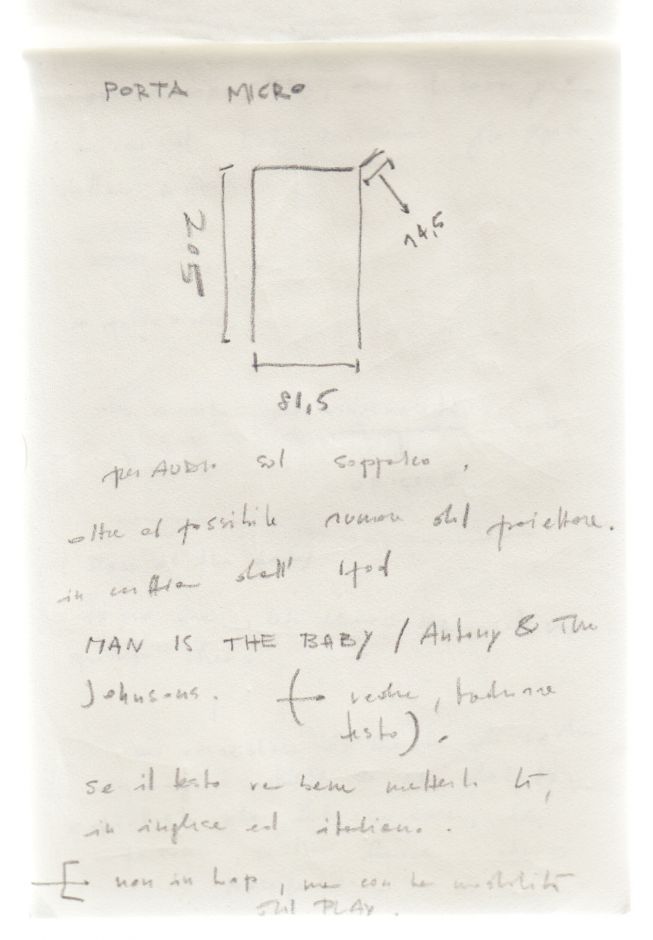 PORTA MICRO
205
14,5
81,5
per AUDIO sul soppalco,
oltre al possibile rumore del proiettore.
in cuffia dall' ipod
MAN IS THE BABY / Antony & The
Johnsons. (→ vedere, tradurre
testo).
se il testo va bene metterlo lì,
in inglese ed italiano.
[→ non in loop, ma con la modalità
del PLAY.